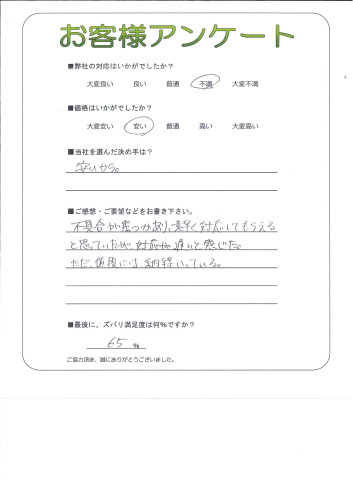 お客様アンケート
■弊社の対応はいかがでしたか?
大変良い 良い 普通 不満 大変不満
■価格はいかがでしたか?
大変安い 安い 普通 高い 大変高い
■当社を選んだ決め手は?
安いから。
■ご感想・ご要望などをお書き下さい。
不具合が幾つかあり、素早く対応してもらえる
と思っていたが、対応が遅いと感じた。
ただ、値段には納得いっている。
■最後に、ズバリ満足度は何%ですか?
65 %
ご協力頂き、誠にありがとうございました。